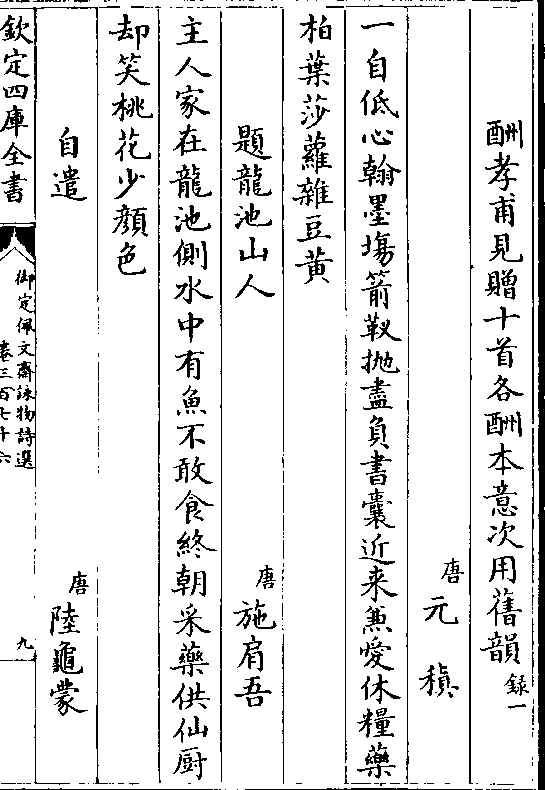 酬孝甫見贈十首各酬本意次用舊韻錄一
唐元稹
一自低心翰墨塲箭靫抛盡負書囊近来兼愛休糧藥
柏葉莎蘿雜豆黃
題龍池山人
唐施肩吾
主人家在龍池側水中有魚不敢食終朝采藥供仙厨
却笑桃花少顔色
自遣
唐陸龜蒙
欽定四庫全書
御定佩文齋詠物詩選
卷三百七十六
九